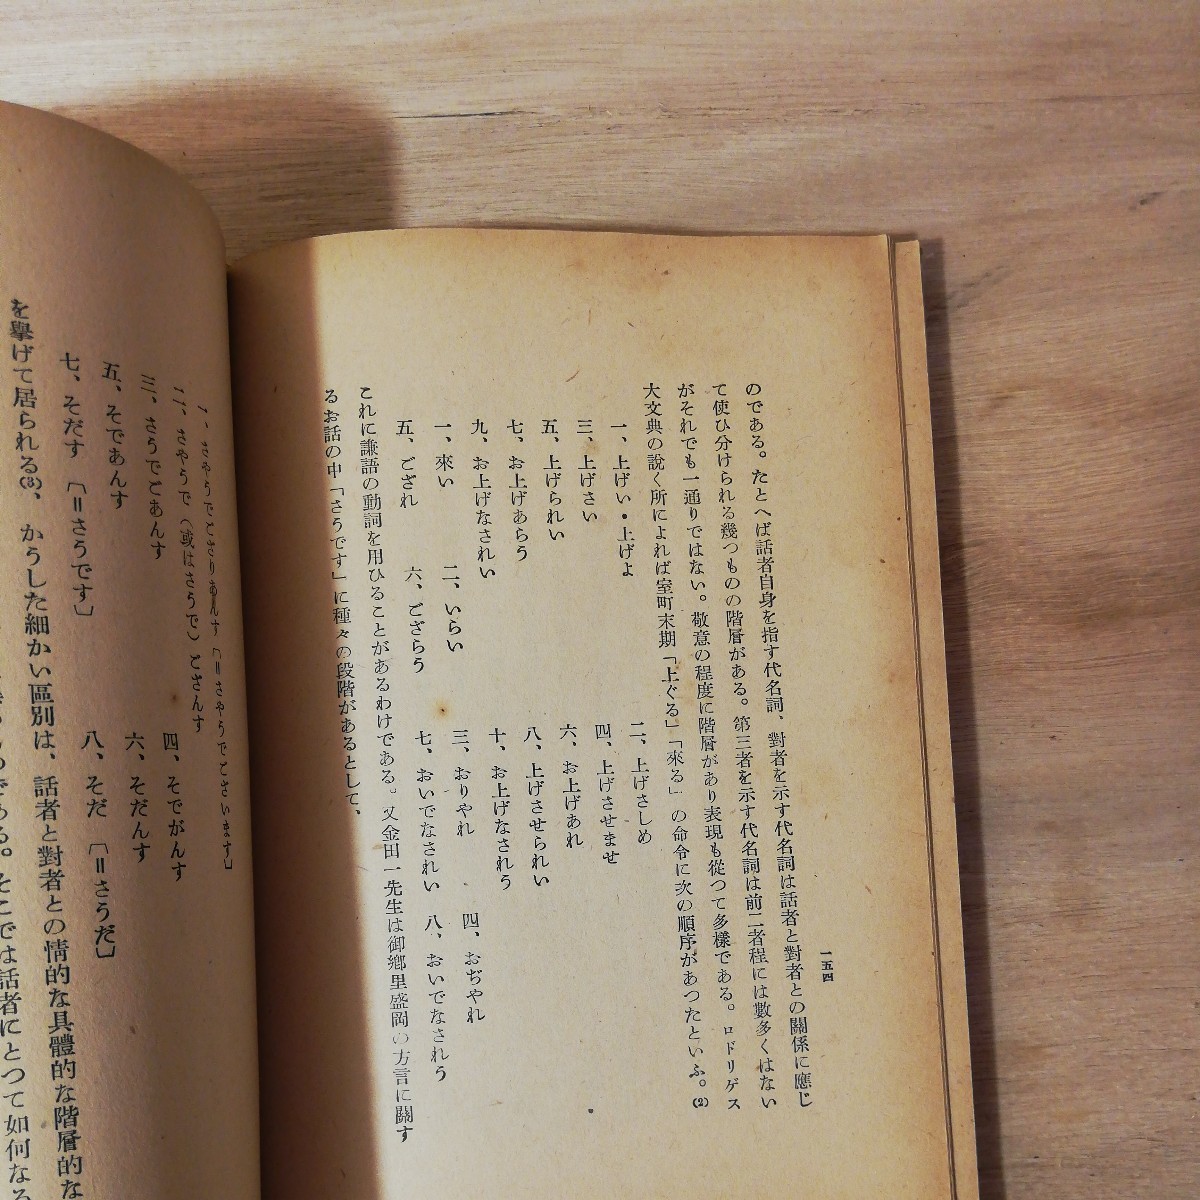 一五四
のである。たとへば話者自身を指す代名詞、對者を示す代名詞は話者と對者との關係に應じ
て使ひ分けられる幾つものの階層がある。第三者を示す代名詞は前二者程には數多くはない
がそれでも一通りではない。敬意の程度に階層があり表現も從つて多樣である。ロドリゲス
大文典の說く所によれば室町末期「上ぐる」「來る」の命令に次の順序があつたといふ。(2)
一、上げい・上げよ　二、上げさしめ
三、上げさい　四、上げさせませ
五、上げられい　六、お上げあれ
七、お上げあらう　八、上げさせられい
九、お上げなされい　十、お上げなされう
一、來い　二、いらい　三、おりやれ　四、おぢやれ
五、ござれ　六、ござらう　七、おいでなされい　八、おいでなされう
これに謙語の動詞を用ひることがあるわけである。又金田一先生は御鄕里盛岡の方言に關す
るお話の中「さうです」に種々の段階があるとして、
一、さやうでござりあんす〔＝さやうでございます〕
二、さやうで（或はさうで）ごさんす
三、さうでごあんす　四、そでがんす
五、そであんす　六、そだんす
七、そだす〔＝さうです〕　八、そだ〔＝さうだ〕
を擧げて居られる(3)、かうした細かい區別は、話者と對者との情的な具體的な階層的な
のである。そこでは話者にとつて如何なる